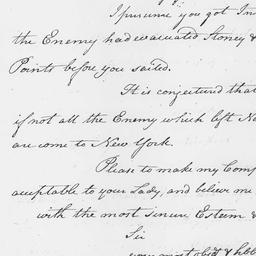 I presume you got In
the Enemy had evacuated Stoney &
Points before you sailed.
It is conjectured that
if not all the Enemy which left Ne
are come to New York.
Please to make my Comp
acceptable to your Lady, and believe me
with the most sincere Esteem &
Sir
your most obdt & hble